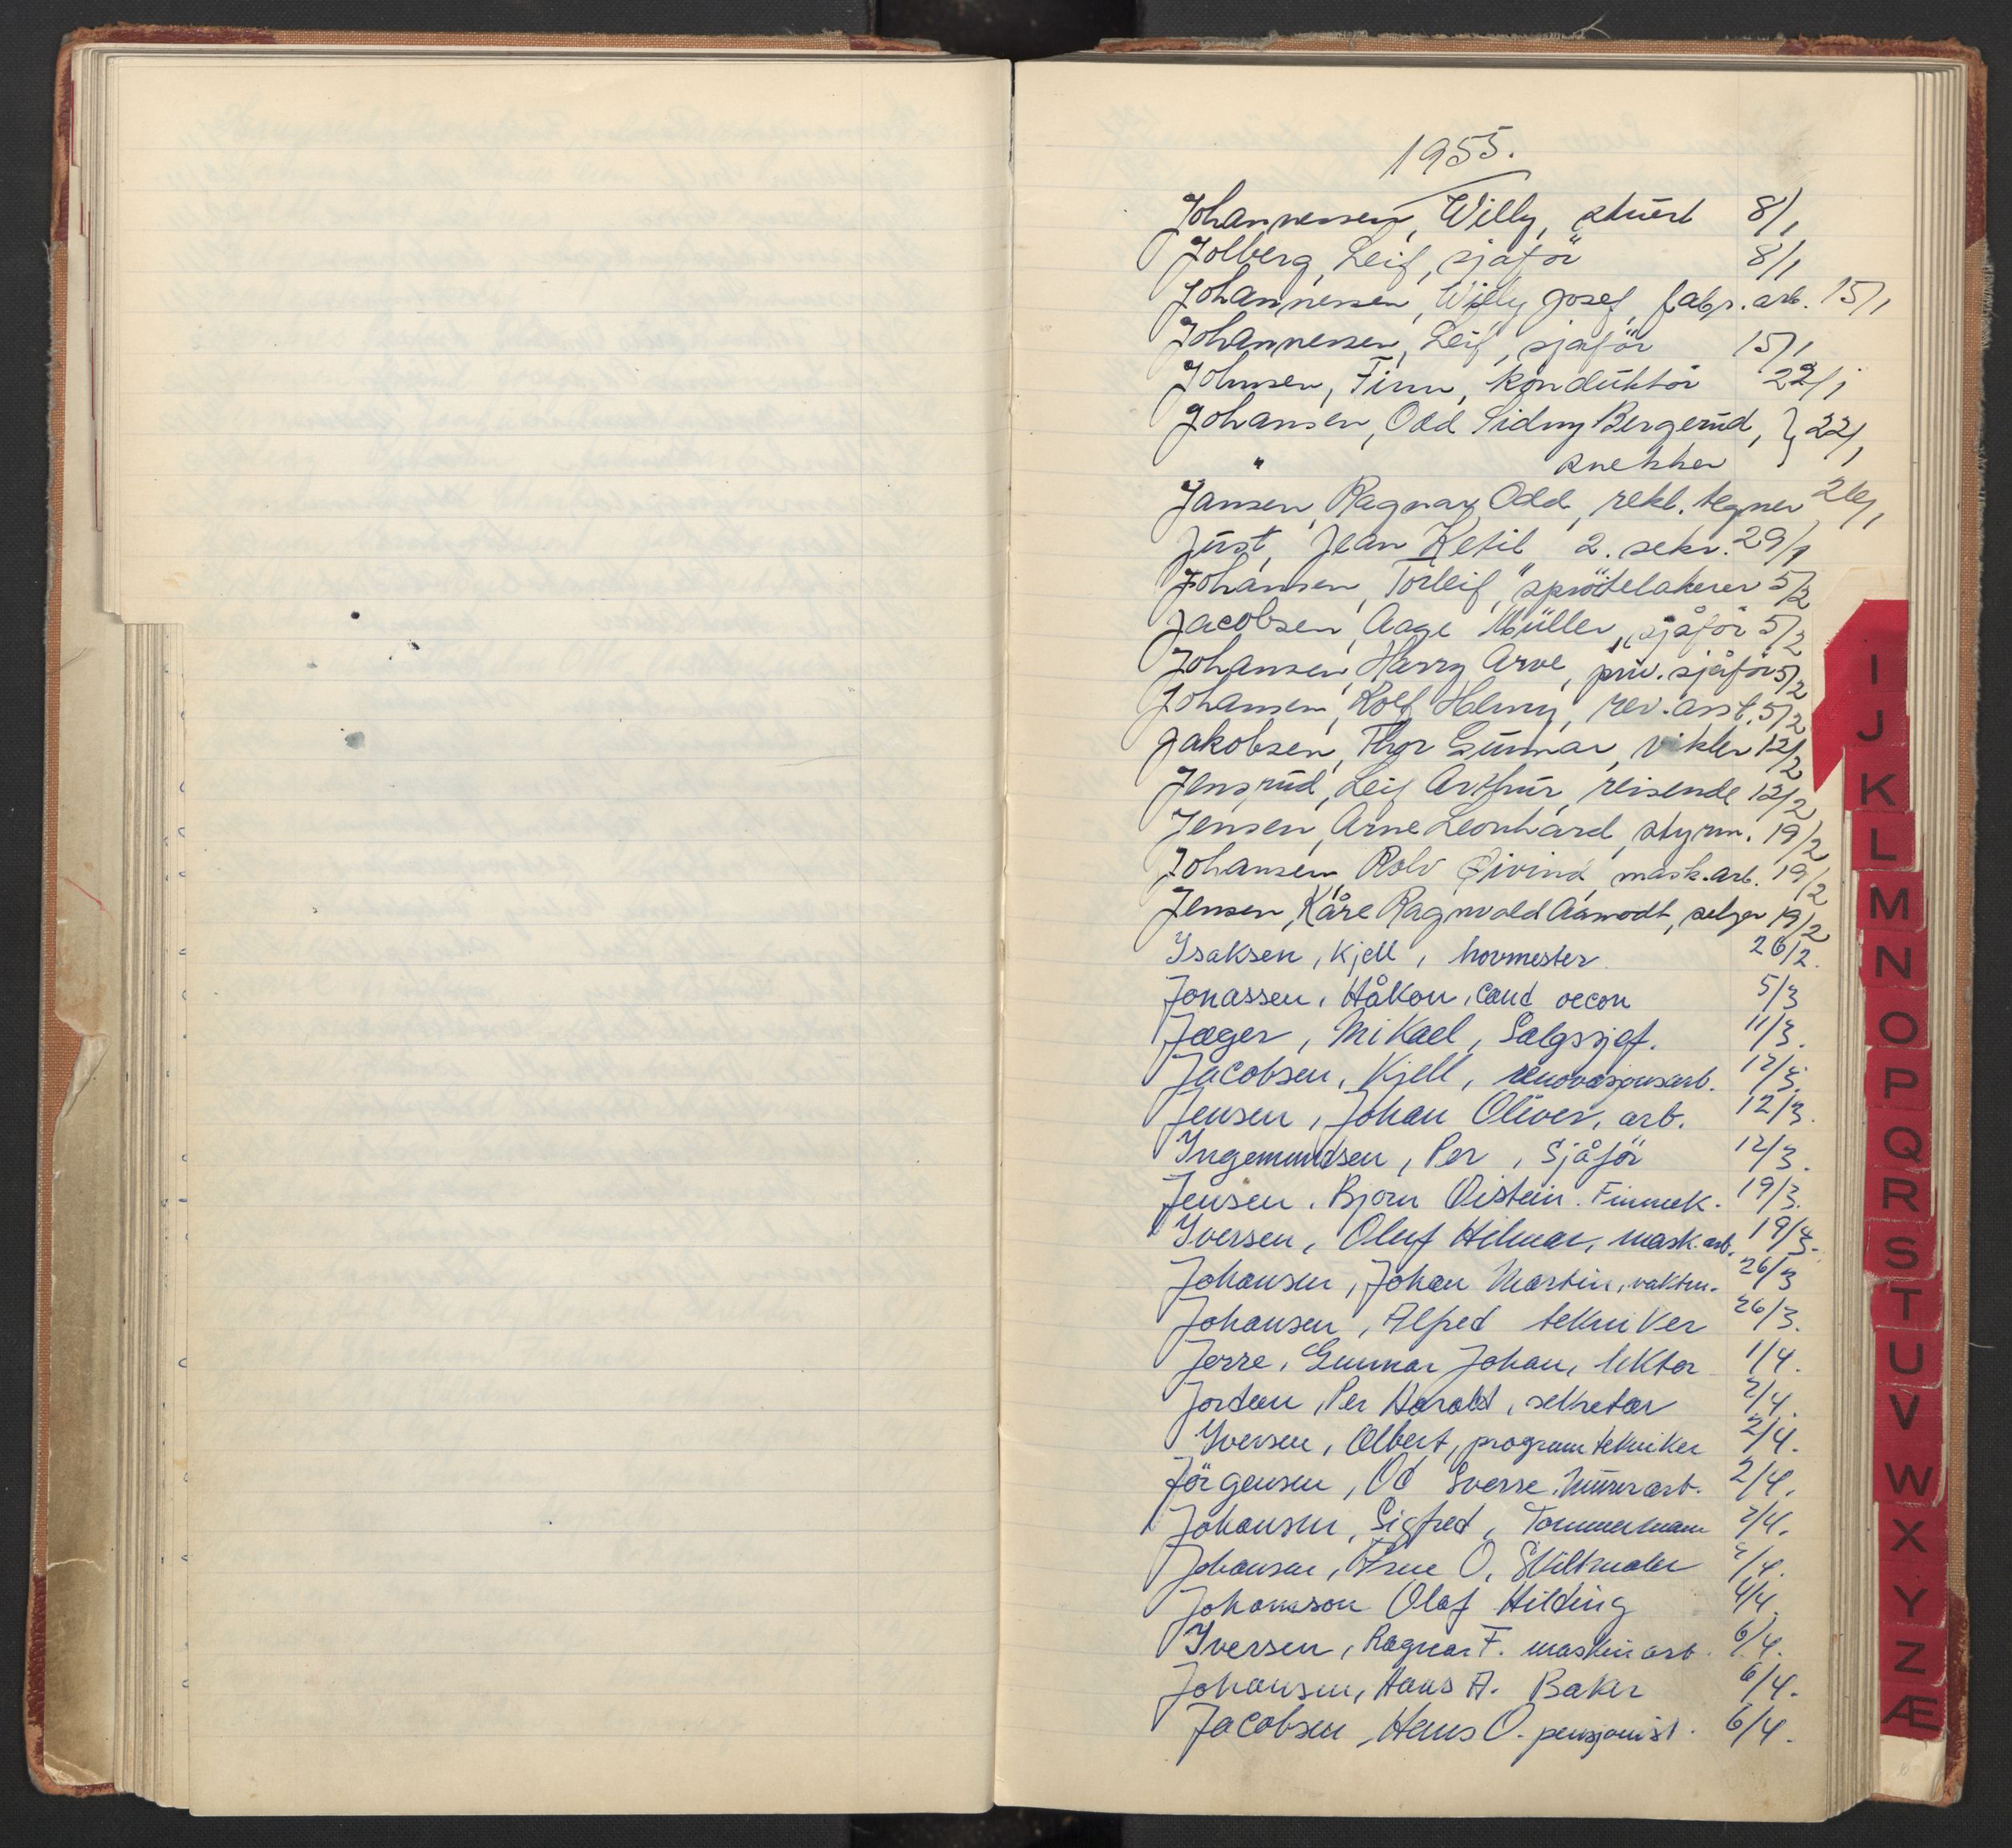 1955.
Johannessen, Willy, stuert 8/1
Jolberg, Leif, sjåför 8/1
Johannessen, Willy Josef, fabr. arb. 15/1
Johannessen, Leif, sjåför 15/1
Johnsen, Finn, konduktör 22/1
Johansen, Odd Sidny Bergerud, } 22/1
" snekker
Jansen, Ragnar Odd, rekl. tegner 26/1
Just, Jean Ketil 2. sekr. 29/1
Johansen, Torleif, spröitelakerer 5/2
Jacobsen, Aage Müller, sjåför 5/2
Johansen, Harry Arve, priv. sjåför 5/2
Johansen, Rolf Henry, rev. asst. 5/2
Jakobsen, Thor Gunnar, vikler 12/2
Jensrud, Leif Arthur, reisende 12/2
Jensen, Arne Leonhard, styrm. 19/2
Johansen, Rolv Øivind, mask. arb. 19/2
Jensen, Kåre Ragnvald Aamodt, selger 19/2
Isaksen, Kjell, hovmester. 26/2.
Jonassen, Håkon, cand oecon 5/3
Jæger, Mikael, Salgssjef. 11/3.
Jacobsen, Kjell, renovasjonsarb. 12/3.
Jensen, Johan Oliver, arb. 12/3.
Ingemundsen, Per, Sjåför 12/3.
Jensen, Bjorn Oistein. Finmek. 19/3.
Iversen, Oluf Hilmar, mask. arb. 19/3.
Johansen, Johan Martin, vaktm. 26/3
Johansen, Alfred tekniker 26/3.
Jorre, Gunnar Johan, lektor 1/4.
Jordan, Per Harald, sekretær 2/4.
Iversen, Albert, program tekniker 2/4.
Jörgensen, Od Sverre. Murerarb. 2/4.
Johansen, Sigfred, Tommermann 2/4.
Johansen, Arne O, Skiltmaler 2/4.
Johansson Olaf Hilding 4/4.
Iversen, Ragnar F. maskinarb. 6/4.
Johansen, Hans A. Baker 6/4.
Jacobsen, Hans O. pensjonist. 6/4.
I
J
K
L
M
N
O
P
Q
R
S
T
U
V
W
X
Y
Z
Æ